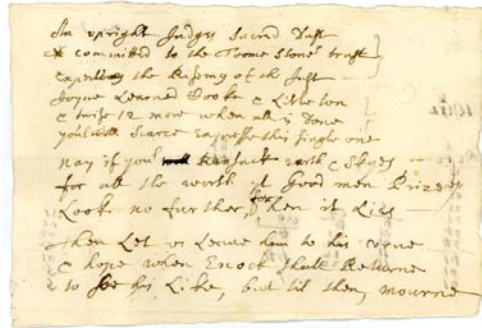 An upright Judges Sacred Dust
committed to the Toome Stones trust
expecting the Rising of the Just
Joyne Learned Cooke & Littleton
& twise 12 more when all is Done
youl scarce expresse this single one
nay if you Ransack earth & Skyes
for all the worth yt Good men Prizes
Look no further, for hen it Lies
Then Let us Leaue him to his vrne
& hope when Enock shall Returne
to See his Like, but til then, mourne